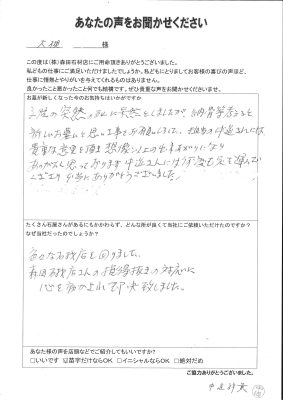 あなたの声をお聞かせください
様
この度は（株）森田石材店にご用命頂きありがとうございました。
私どもの仕事にご満足いただけましたでしょうか。私どもにとりましてお客様の喜びの声ほど、
仕事に情熱とやりがいを与えてくれるものはありません。
良かったこと悪かったこと何でも結構です。ぜひ貴重な声をお聞かせくださいませ。
お墓が新しくなった今のお気持ちはいかがですか
新しいお墓にと思い工事をお願いしました。担当の中辻さんには
貴重な意見を頂き想像以上の出来上がりになり
ありがたく思っております
本当にありがとうございました!
たくさん石屋さんがあるにもかかわらず、どんな所が良くて当社にご依頼いただけたのですか？
なぜ当社だったのでしょうか？
色々な石材店を回りました。
森田石材店さんの損得抜きの対応に
心を動かされ即決致しました。
あなた様の声を店頭などでご紹介してもいいですか？
□いいです ☑苗字だけならOK □イニシャルならOK □絶対だめ
ご協力ありがとうございました。